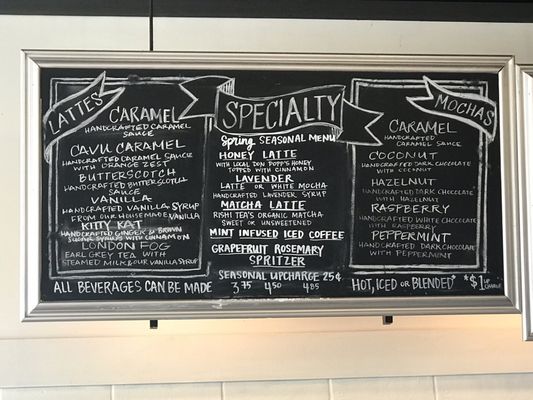 LATTES
CARAMEL
HANDCRAFTED CARAMEL
SAUCE
CAVU CARAMEL
HANDCRAFTED CARAMEL SAUCE
WITH ORANGE ZEST
BUTTERSCOTCH
HANDCRAFTED BUTTERSCOTCH
SAUCE
VANILLA
HANDCRAFTED VANILLA SYRUP
FROM OUR HOUSEMADE VANILLA
KITTY KAT
HANDCRAFTED GINGER & BROWN
SUGAR SYRUPS WITH CINNAMON
LONDON FOG
EARL GREY TEA WITH
STEAMED MILK & OUR VANILLA SYRUP
SPECIALTY
Spring SEASONAL MENU
HONEY LATTE
WITH LOCAL DON POPP'S HONEY
TOPPED WITH CINNAMON
LAVENDER
LATTE OR WHITE MOCHA
HANDCRAFTED LAVENDER SYRUP
MATCHA LATTE
RISHI TEA'S ORGANIC MATCHA
SWEET OR UNSWEETENED
MINT INFUSED ICED COFFEE
GRAPEFRUIT ROSEMARY
SPRITZER
SEASONAL UPCHARGE 25¢
MOCHAS
CARAMEL
HANDCRAFTED
CARAMEL SAUCE
COCONUT
HANDCRAFTED DARK CHOCOLATE
WITH COCONUT
HAZELNUT
HANDCRAFTED DARK CHOCOLATE
WITH HAZELNUT
RASPBERRY
HANDCRAFTED WHITE CHOCOLATE
WITH RASPBERRY
PEPPERMINT
HANDCRAFTED DARK CHOCOLATE
WITH PEPPERMINT
ALL BEVERAGES CAN BE MADE
3.75 4.50 4.85
HOT, ICED OR BLENDED* *$1 UPCHARGE